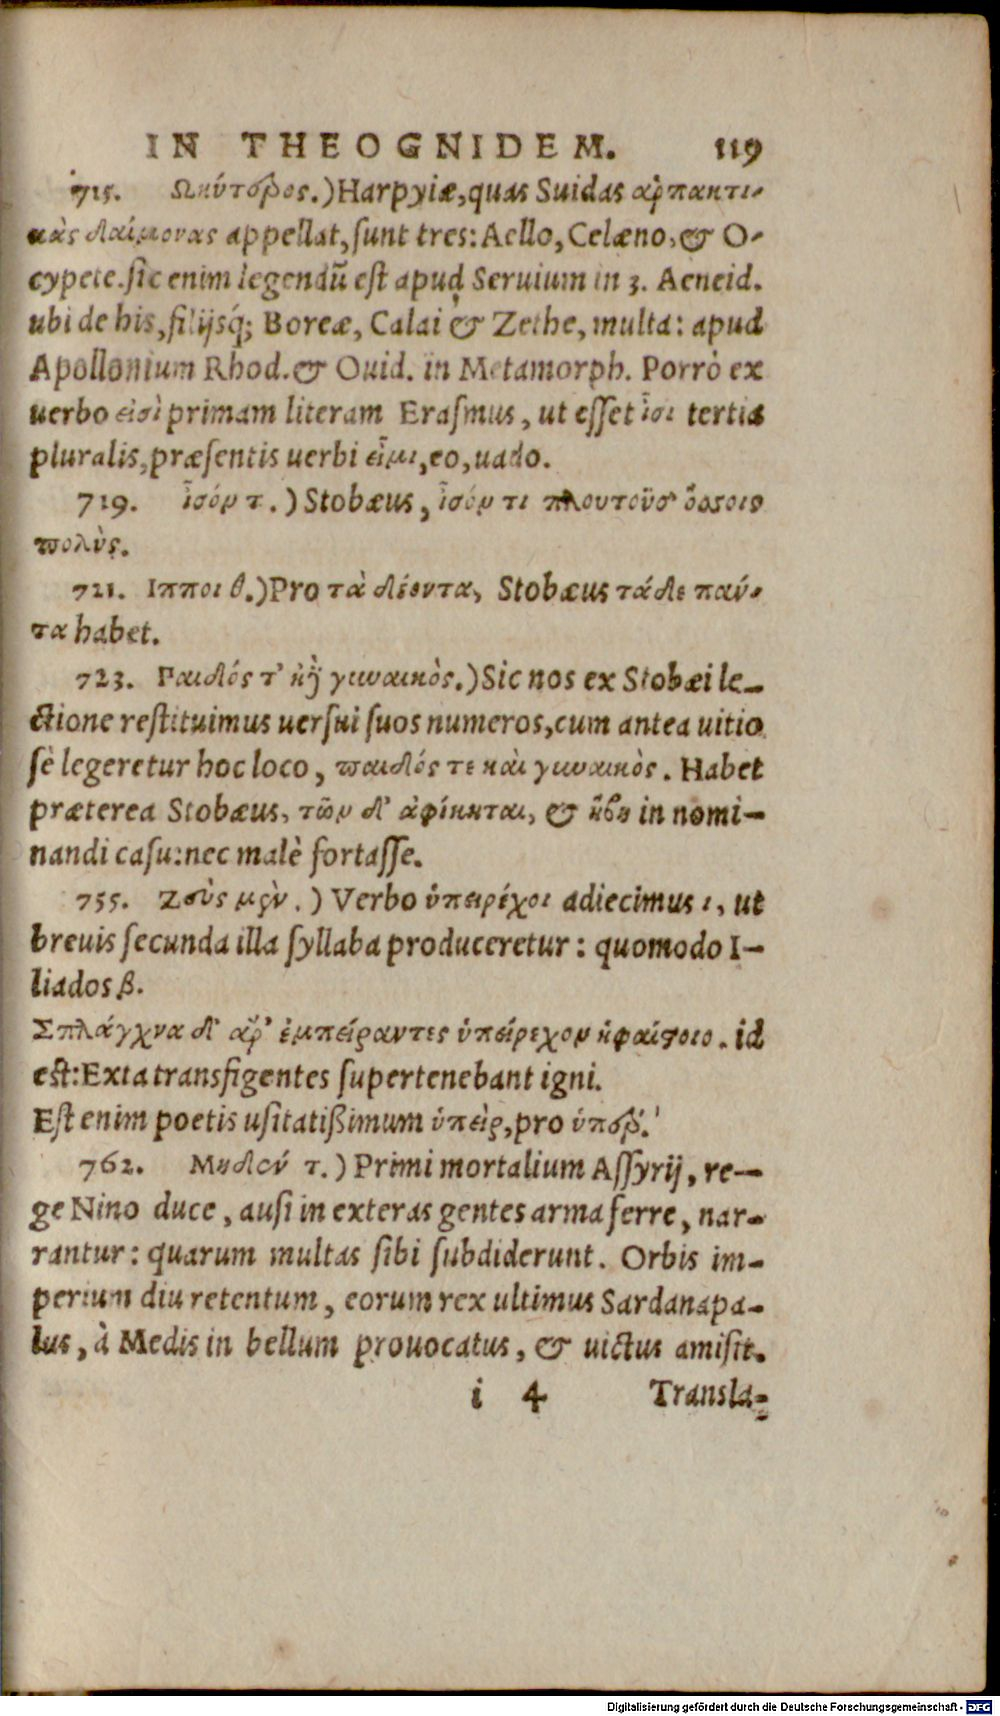 IN THEOGNIDEM. 119
715. Ωκύτερος.) Harpyiæ, quas Suidas ἁρπακτι-
κὰς δαίμονας appellat, sunt tres: Aello, Celæno, & O-
cypete. sic enim legendũ est apud Seruium in 3. Aeneid.
ubi de his, filijsq́; Boreæ, Calai & Zethe, multa: apud
Apollonium Rhod. & Ouid. in Metamorph. Porrò ex
uerbo εἰσὶ primam literam Erasmus, ut esset ἶσι tertia
pluralis, præsentis uerbi εἶμι, eo, uado.
719. ἶσόν τ.) Stobæus, ἶσόν τι πλουτοῦσ' ὅσοις
πολὺς.
721. Ιπποι θ.) Pro τὰ δέοντα, Stobæus τάδε πάν-
τα habet.
723. Παιδός τ' κỳ γυναικὸς.) Sic nos ex Stobæi le-
ctione restituimus uersui suos numeros, cum antea uitio
sè legeretur hoc loco, παιδός τε καὶ γυναικὸς. Habet
præterea Stobæus, τῶν δ' ἀφίκηται, & ἥβη in nomi-
nandi casu: nec malè fortasse.
755. Ζεὺς μὲν.) Verbo ὑπειρέχοι adiecimus ι, ut
breuis secunda illa syllaba produceretur: quomodo I-
liados β.
Σπλάγχνα δ' ἄρ' ἐμπείραντες ὑπείρεχον ἡφαίστοιο. id
est: Exta transfigentes supertenebant igni.
Est enim poetis usitatißimum ὑπεὶρ, pro ὑπέρ.
762. Μηδειύ τ.) Primi mortalium Assyrij, re-
ge Nino duce, ausi in exteras gentes arma ferre, nar-
rantur: quarum multas sibi subdiderunt. Orbis im-
perium diu retentum, eorum rex ultimus Sardanapa-
lus, à Medis in bellum prouocatus, & uictus amisit.
i 4 Transla-
Digitalisierung gefördert durch die Deutsche Forschungsgemeinschaft - DFG